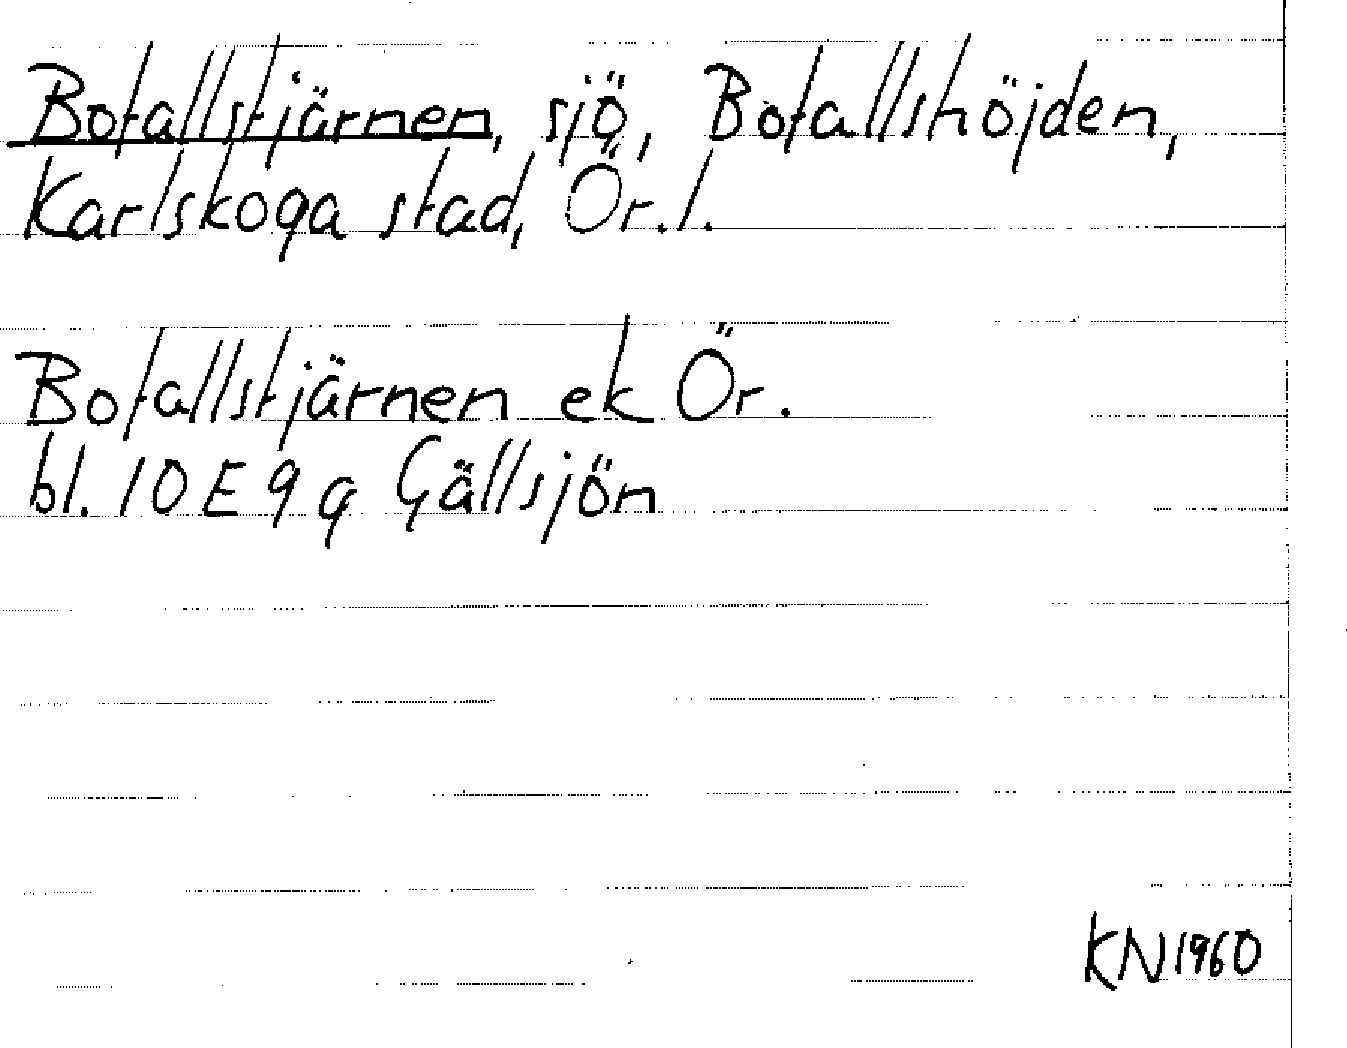 Bofallstjärnen, sjö, Bofallshöjden,
Karlskoga stad, Ör. l.
Bofallstjärnen ek Ör.
bl. 10 E 9 g Gällsjön
KN1960